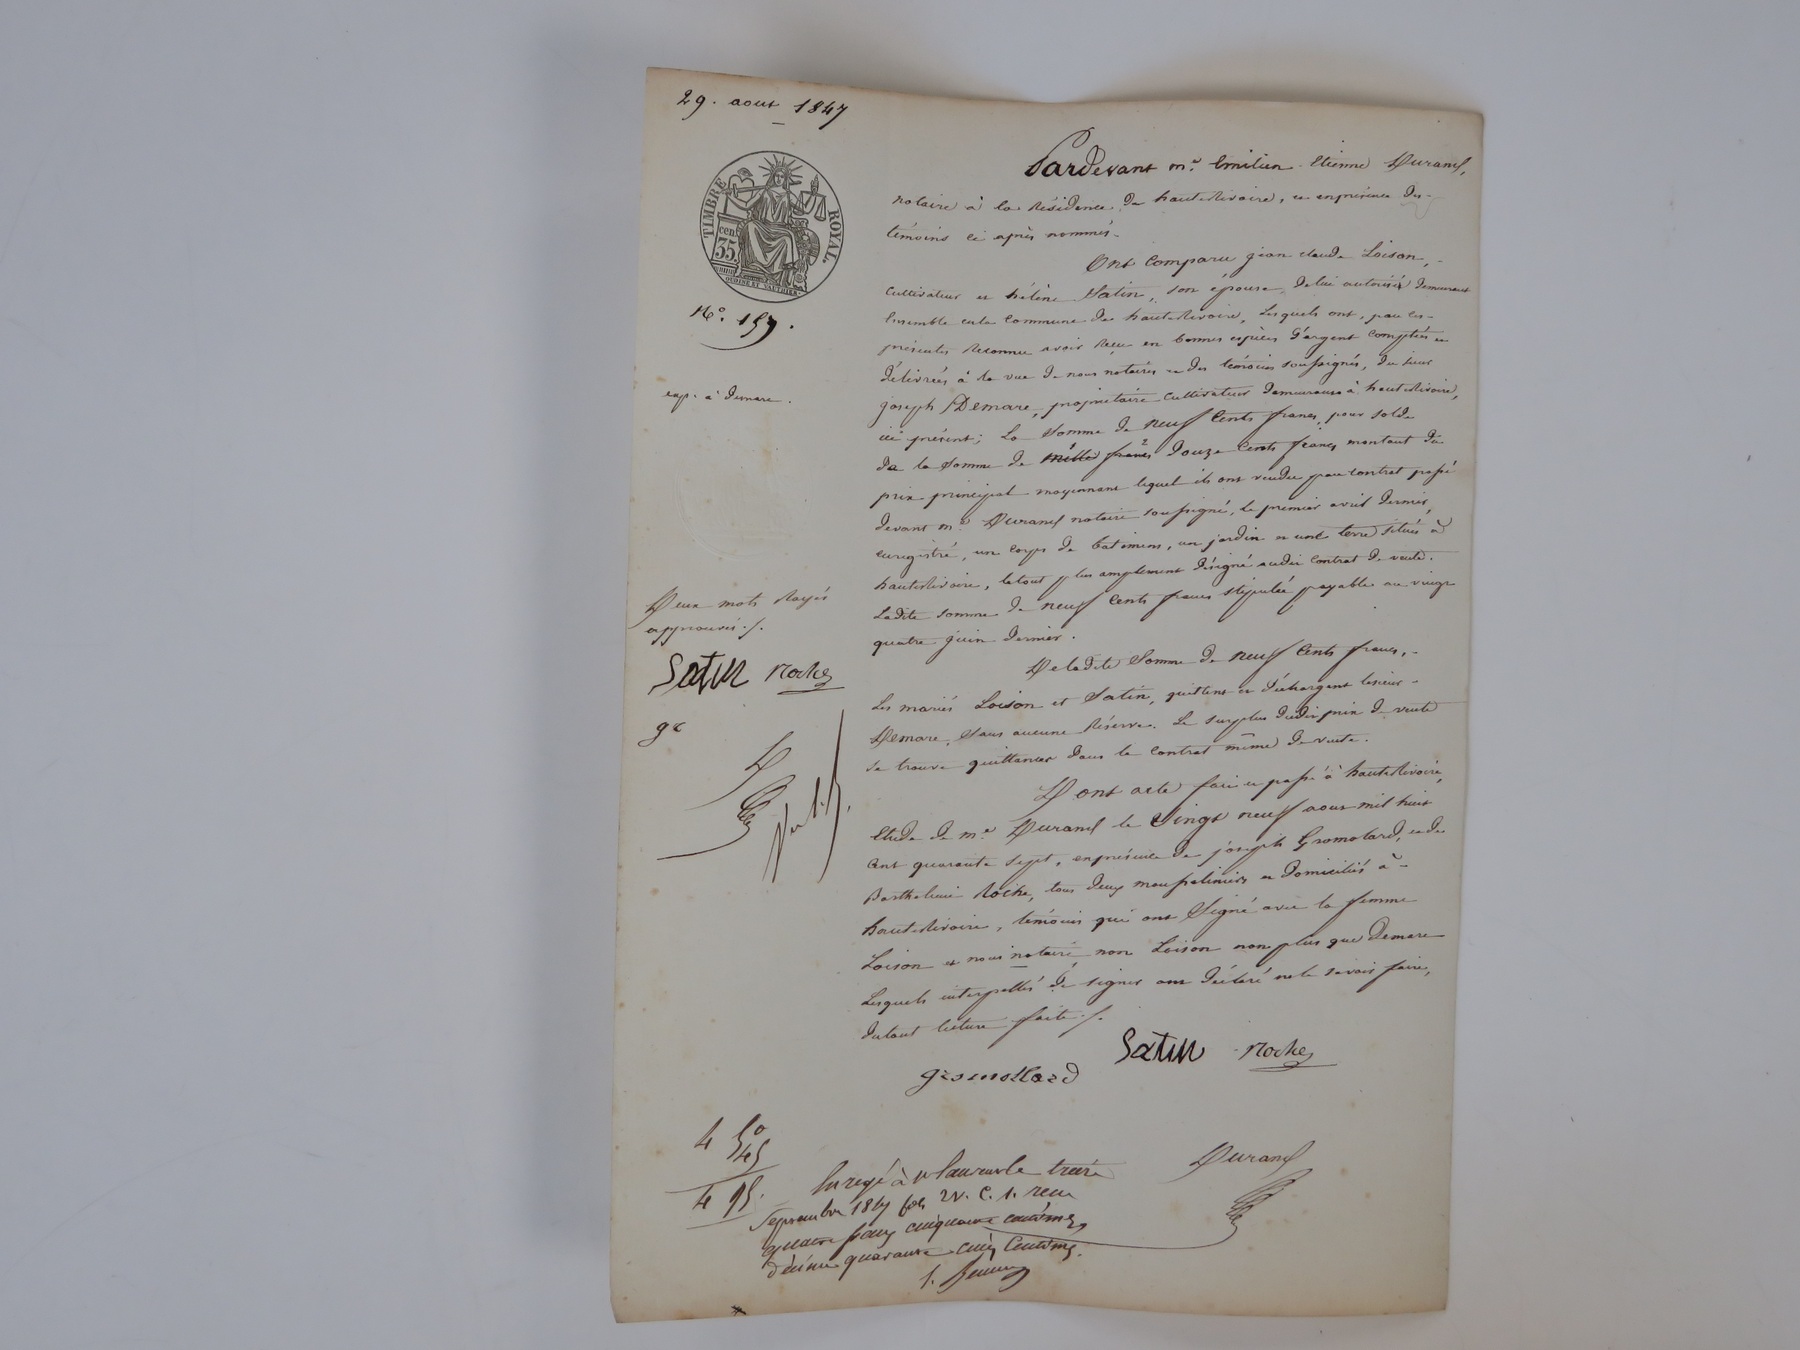 29. aout 1847
TIMBRE ROYAL.
cen.
35.
OUDINÉ ET GAUTHIER.
N°. 157.
exp. à Demare.
Pardevant me. Emilien Etienne Durand,
notaire à la Résidence de hauteRivoire, et enprésence des
témoins ci après nommés.
Ont Comparu jean claude Loison,
Cultivateur et hélène Satin, son épouse de lui autorisée demeurant
Ensemble enla Commune de hauteRivoire, Lesquels ont, par ces
présentes Reconnu avoir Reçu en bonnes espèces d'argent Comptées et
délivrées à la vue de nous notaire et des témoins soussignés, du sieur
joseph Demare, propriétaire Cultivateur demeurant à hauteRivoire,
ici présent; La Somme de neuf Cents francs, pour solde
de la Somme de mille francs douze Cents francs montant du
prix principal moyennant lequel ils ont vendu par contrat passé
devant me. Durand notaire soussigné, le premier avril dernier,
enregistré, un corps de batimens, un jardin et une terre situés à
hauteRivoire, le tout plus amplement désigné audit Contrat de vente.
Ladite somme de neuf Cents francs stipulée payable au vingt
quatre juin dernier.
De ladite Somme de neuf Cents francs,
Les mariés Loison et Satin, quittent et déchargent lesieur
Demare, Sans aucune Réserve. Le surplus dudit prix de vente
se trouve quittancé dans le Contrat même de vente.
Dont acte fait et passé à hauteRivoire,
Etude de me. Durand le Vingt neuf aout mil huit
Cent quarante sept, enprésence de joseph Gromolard, et de
Barthelimi Roche, tous deux mousseliniers et domiciliés à
hauteRivoire, témoins qui ont Signé avec la femme
Loison et nous notaire, non Loison non plus que Demare
Lesquels interpellés de signer ont déclaré ne le savoir faire,
du tout lecture faite ./.
Deux mots Rayés
approuvés ./.
Satin Roche
gr
D
Satin Roche
gromollard
Durand
4 50
45
4 95.
Enregé à St Laurent le treize
Septembre 1847 fol. 2v. C. 1. reçu
quatre francs cinquante centimes,
décime quarante cinq Centimes.